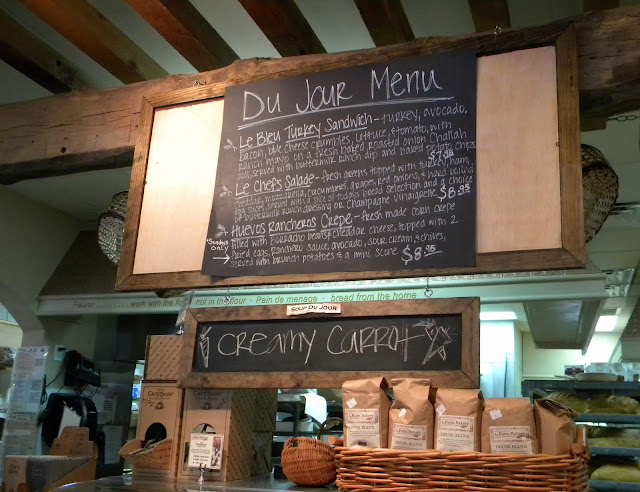 Du Jour Menu
Le Bleu Turkey Sandwich - turkey, avocado,
bacon, blue cheese crumbles, lettuce, & tomato, with
ranch mayo on a fresh baked roasted onion Challah
roll, served with buttermilk ranch dip and baked potato chips
$7.95
Le Chefs Salade - fresh greens topped with turkey, ham,
cheddar, mozzarella, cucumbers, grape tomatoes, & hard boiled
egg slices. Served with a slice of today's bread selection and a choice
of buttermilk ranch dressing or Champagne Vinaigrette. $8.95
Huevos Rancheros Crepe - fresh made corn crepe
*Sundays only
filled with borracho beans & cheddar cheese, topped with 2
fried eggs, ranchero sauce, avocado, sour cream, & chives,
served with brunch potatoes & a mini scone $8.95
work with the not in the flour · Pain de menage - bread from the home
SOUP DU JOUR
Creamy Carrot
HOUSE BLEND
HOUSE BLEND